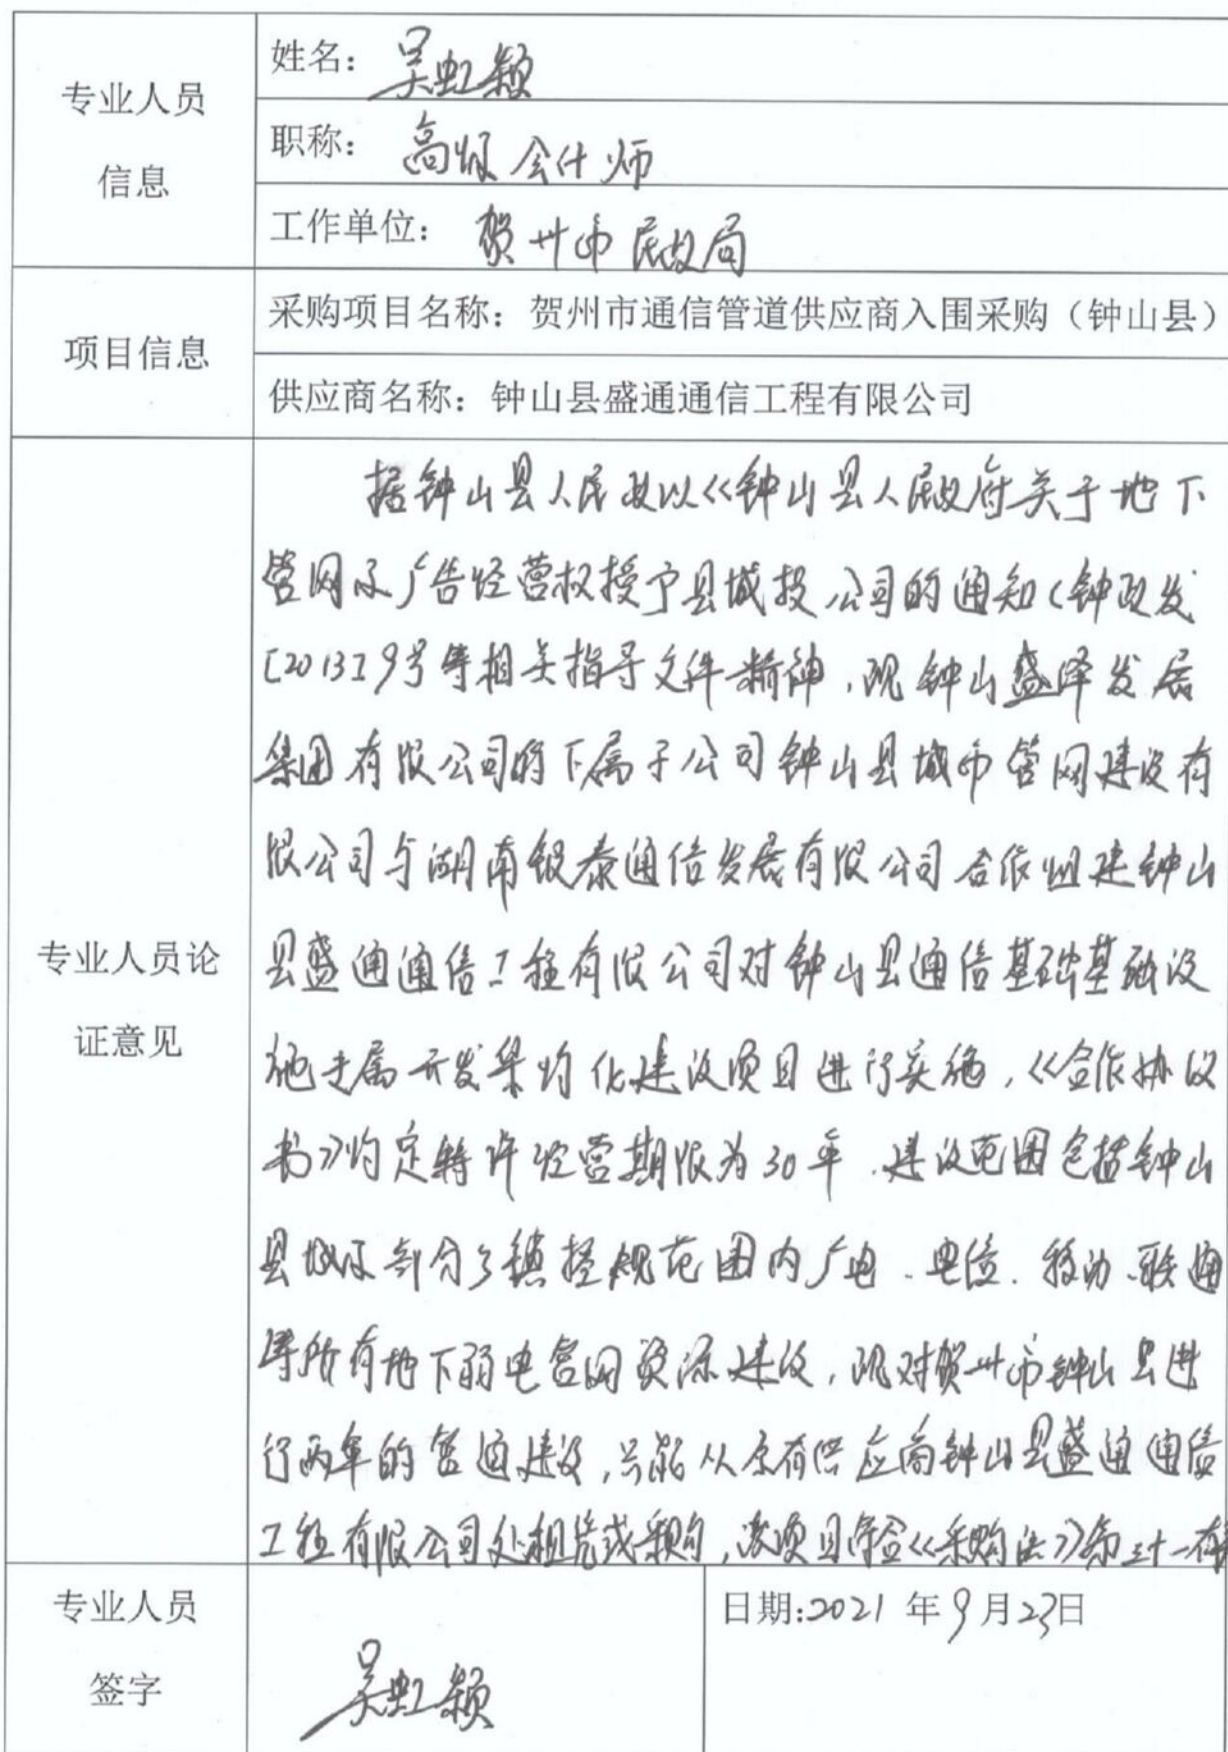 专业人员
信息
姓名：吴虹颖
职称：高级会计师
工作单位：贺州市民政局
项目信息
采购项目名称：贺州市通信管道供应商入围采购（钟山县）
供应商名称：钟山县盛通通信工程有限公司
专业人员论
证意见
据钟山县人民政以《钟山县人民政府关于地下
管网及广告经营权授予县城投公司的通知（钟政发
[2013]9号等相关指导文件精神，现钟山盛泽发展
集团有限公司将下属子公司钟山县城市管网建设有
限公司与湖南银泰通信发展有限公司合作组建钟山
县盛通通信工程有限公司对钟山县通信基础基础设
施专属开发集约化建设项目进行实施，《合作协议
书》约定特许经营期限为30年．建设范围包括钟山
县城及部分乡镇控规范围内广电、电信、移动、联通
等所有地下弱电管网资源建设，现对贺州市钟山县进
行两年的管道建设，只能从原有供应商钟山县盛通通信
工程有限公司处租凭或采购，该项目符合《采购法》第三十一条
专业人员
签字
吴虹颖
日期:2021年9月23日